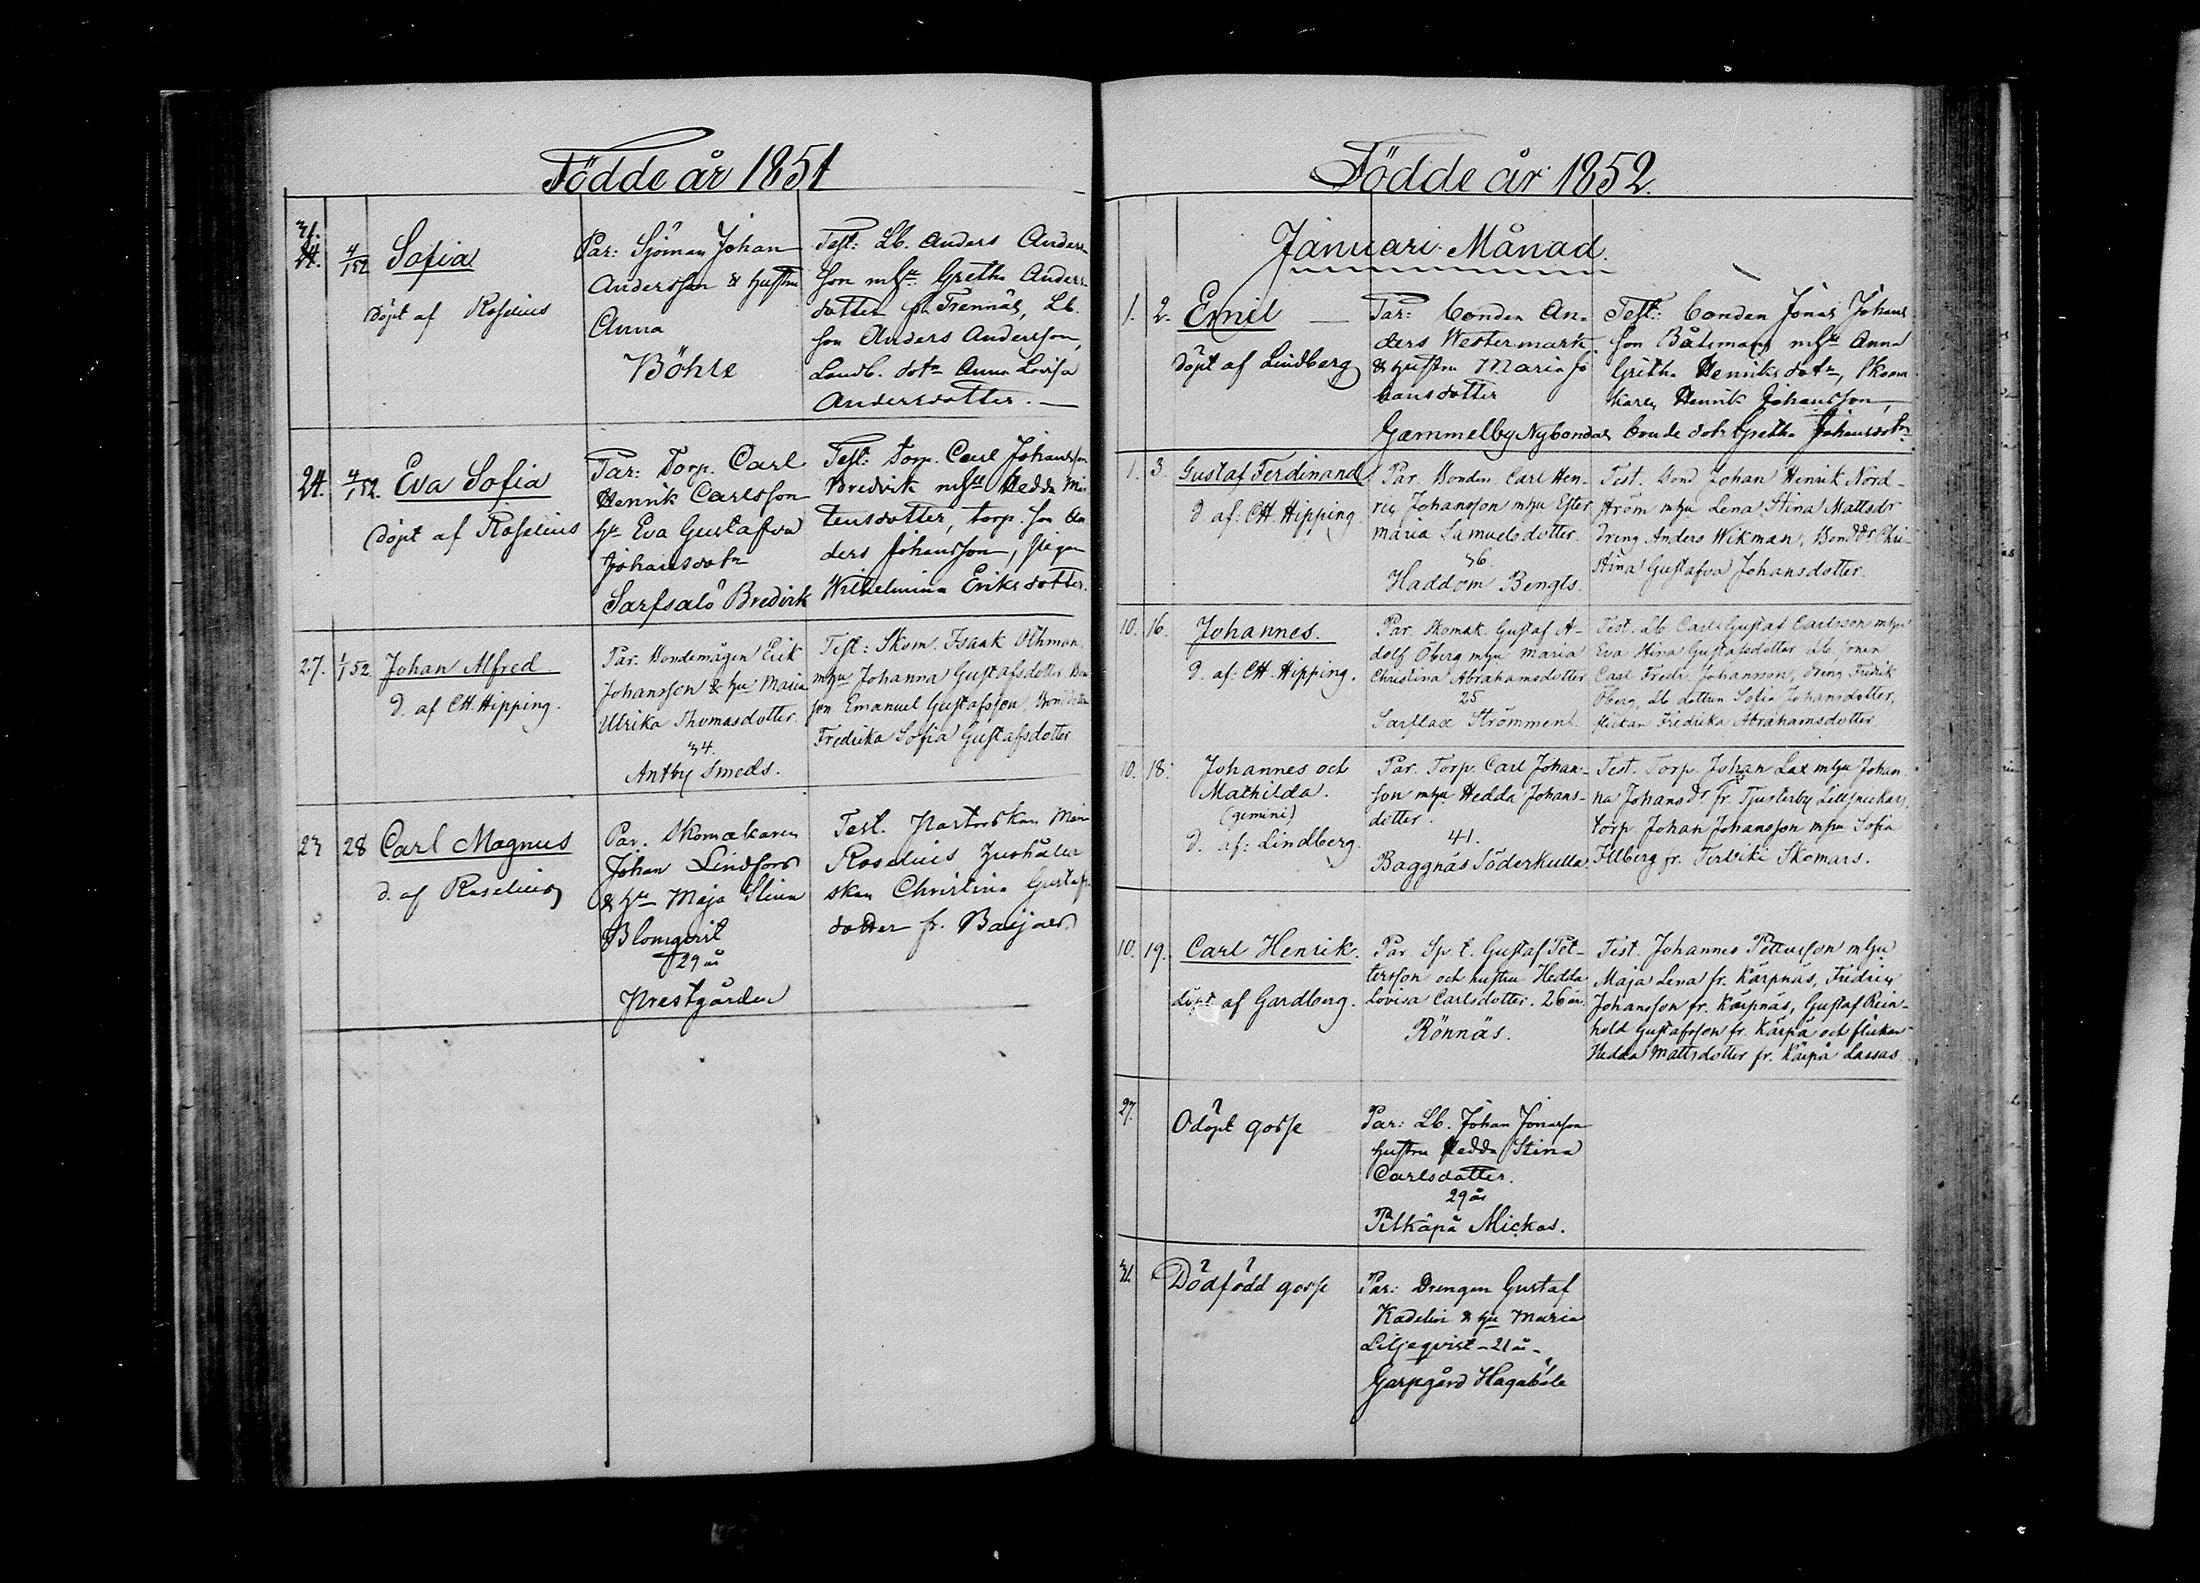 Födde år 1851
31.
24.
4/1 52
Sofia
Döpt af Roselius
Par: Sjöman Johan
Andersson & hustru
Anna
Böhle
Test: Lb. Anders Anders
son mhu Greta Anders
dotter fr. Trennäs, Lb.
son Anders Andersson,
Landb. dotr Anna Lovisa
Andersdotter. —
24. 4/1 52. Eva Sofia
Döpt af Roselius
Par: Torp. Carl
Henrik Carlsson
hu Eva Gustafva
Johansdotr
Sarfsalö Bredvik
Test: Torp. Carl Johansson
Bredvik mhu Hedda Mår
tensdotter, torp. son An
ders Johansson, pigan
Wilhelmina Eriksdotter.
27. 1/1 52 Johan Alfred
D. af CH. Hipping.
Par. Bondemågen Erik
Johansson & hu Maria
Ulrika Thomasdotter.
34.
Antby Smeds.
Test: Skom. Isaak Öhman
mhu Johanna Gustafsdotter Bon
son Emanuel Gustafsson, Bond dottr
Fredrika Sofia Gustafsdotter
23 28 Carl Magnus
d. af Roselius
Par. Skomakaren
Johan Lindfors
& hu Maja Stina
Blomqvist
29 år
Prestgården
Test. Pastorskan Mina
Roselius hushåller
skan Christina Gustafs
dotter fr. Baijars
Födde år 1852.
Januari Månad.
1. 2. Emil —
Döpt af Lindberg
Par: bonden An-
ders Westermark
& hustru Maria Jo
hansdotter
Gammelby Nybondas
Test: bonden Jonas Johans
son Båtsmans mhu Anna
Gretha Henriksdotr, Skoma
karen Henrik Johansson,
bonde dotr Gretha Johansdotr.
1. 3. Gustaf Ferdinand
D. af: CH. Hipping.
Par. Bonden Carl Hen-
ric Johansson mhu Ester
Maria Samuelsdotter.
36.
Haddom Bengts.
Test. Bond Johan Henrik Nord-
ström mhu Lena Stina Mattsdr
Dreng Anders Wikman, Bond dr Chri-
stina Gustafva Johansdotter.
10. 16. Johannes.
D. af: CH. Hipping.
Par. Skomak. Gustaf A-
dolf Öberg mhu Maria
Christina Abrahamsdotter
25
Sarflax Strömmen.
Test. Lb. Carl Gustaf Carlsson mhu
Eva Stina Gustafsdotter Lb. sonen
Carl Fredr. Johansson, Dreng Fredrik
Öberg, Lb dottren Sofia Johansdotter,
flickan Fredrika Abrahamsdotter
10. 18. Johannes och
Mathilda.
(gemini)
D. af: Lindberg.
Par. Torp. Carl Johan-
son mhu Hedda Johans-
dotter.
41.
Baggnäs Söderkulla.
Test. Torp. Johan Lax mhu Johan
na Johansdr fr. Tjusterby Lillsnickars,
torp. Johan Johansson mhu Sofia
Illberg fr. Tervike Skomars.
10. 19. Carl Henrik.
Döpt af Gardberg.
Par Sp. t. Gustaf Pet-
tersson och hustru Hedda
Lovisa Carlsdotter. 26 år.
Rönnäs.
Test. Johannes Pettersson mhu
Maja Lena fr. Kärpnäs, Fredric
Johansson fr. Kärpnäs, Gustaf Rein-
hold Gustafsson fr. Käspä och flickan
Hedda Mattsdotter fr. Käspä Lassas.
27. Odöpt gosse
Par: Lb. Johan Jonasson
hustru Hedda Stina
Carlsdotter.
29 år
Pitkäpä Mickas.
31. Dödfödd gosse
Par: Drengen Gustaf
Kadelin & hu Maria
Liljeqvist - 21 år -
Garpgård Hagaböle